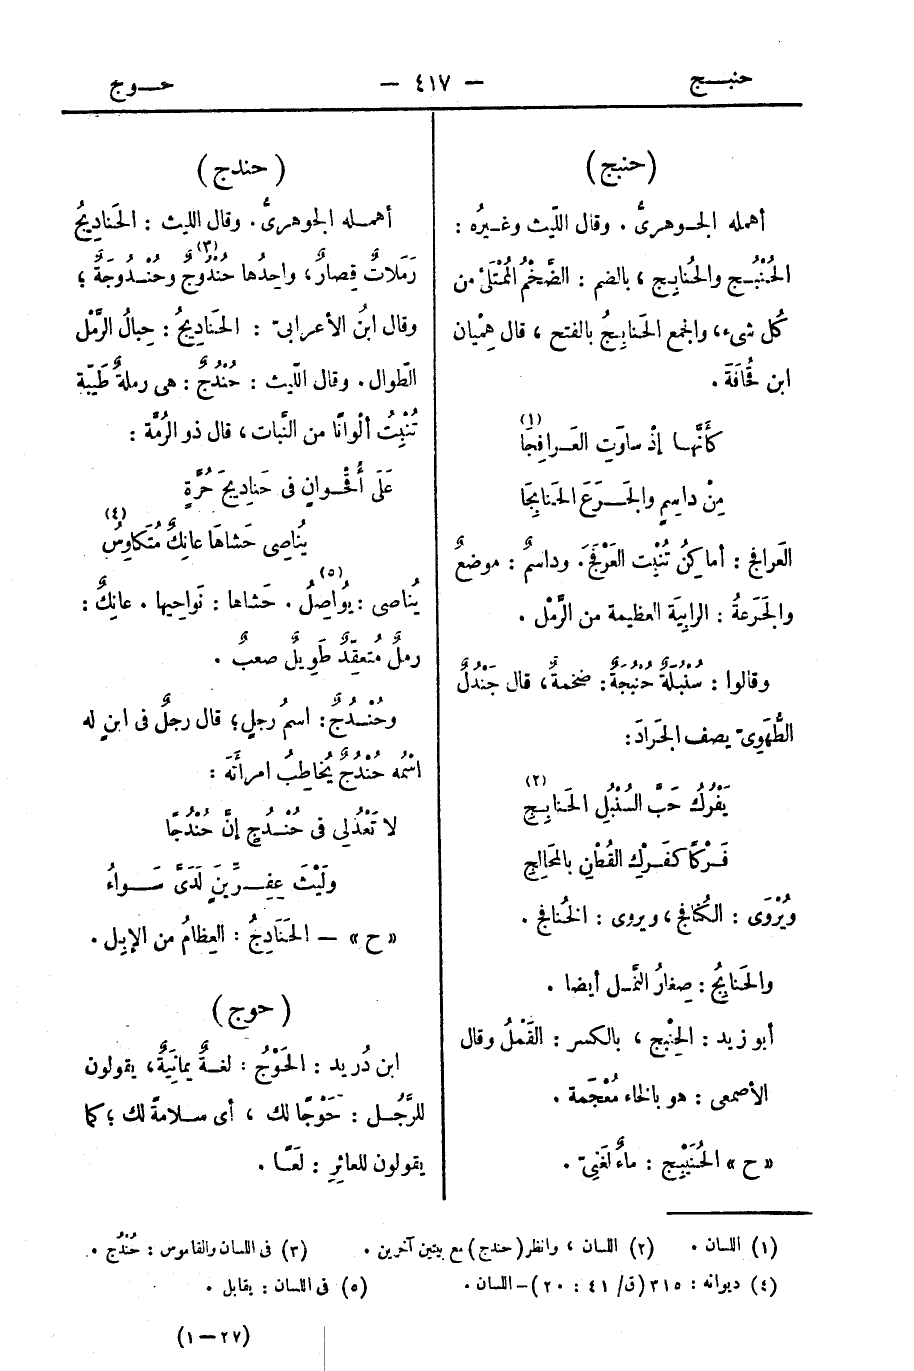 حنبـــج — ٤١٧ — حـــوج
(حنبج)
أهمله الجـوهرىُّ . وقال اللّيث وغـيرُه :
الحُنْبُـج والحُنابِـج ، بالضم : الضَّخْمُ المُمْتَلئ من
كُل شىء، والجمع الحَنابِجُ بالفتح ، قال هِمْيان
ابن قُحَافَةَ .
كَأَنَّهـا إذْ ساوَتِ العَـرافِجَا (١)
مِنْ داسِمٍ والجَـرَعَ الحَنابِجَا
العَرافِج : أماكِنُ تُنْبِت العَرْفَجَ. وداسمٌ : موضعٌ
والجَرَعةُ : الرابِيَة العظيمة من الرَّمْل .
وقالوا : سُنْبُلَةٌ حُنْبُجَةٌ : ضخمةٌ ، قال جَنْدَلٌ
الطُّهَوِىّ يصف الجَرادَ:
يَفْرُكُ حَبَّ السُنْبُلِ الحَنابِـجِ (٢)
فَـرْكًا كفَـرْكِ القُطْنِ بالمَحَالِجِ
ويُرْوَى : الكُنافِج ، ويروى : الخُنافِج .
والحَنابِجُ : صِغارُ النَّمْـل أيضا .
أبو زيد : الحِنْبِج ، بالكسر : القَمْلُ وقال
الأصمعى : هو بالخاء مُعْجَمة .
« ح » الحُنَيْبِج : ماءٌ لغَنِىّ .
(حندج)
أهمـله الجوهرىُّ. وقال الليث : الحَنادِيجُ
رَمَلاتٌ قِصارٌ ، واحِدُها حُنْدُوجٌ (٣) وحُنْـدُوجَةٌ ؛
وقال ابنُ الأعرابىّ : الحَنادِيجُ : حِبالُ الرَّمْل
الطّوال. وقال اللّيث : حُنْدُجٌ : هى رملةٌ طَيِّبَة
تُنْبِتُ ألْوانًا من النَّبات ، قال ذو الرمَّة :
عَلَى أُقْحُـوانٍ فى حَنادِيجَ حُرَّةٍ
يُناصِى حَشاهَا عانِكٌ مُتَكاوِسُ (٤)
يُناصى : يُواصِلُ (٥) . حَشاها : نَواحِيها . عانِكٌ :
رملٌ مُتعقِّدٌ طَوِيلٌ صعبٌ .
وحُنْـدُجٌ: اسمُ رجلٍ ؛ قال رجلٌ فى ابنٍ له
اسْمُه حُنْدُجٌ يُخاطِبُ امرأتَه :
لا تَعْذُلِى فى حُنْـدُجٍ إنَّ حُنْدُجًا
ولَيْثَ عِفِـرِّينٍ لَدَىَّ سَـــواءُ
« ح » — الحَنَادِجُ : العِظامُ من الإبِل .
(حوج)
ابن دُريد : الحَوْجُ : لغـةٌ يمانِيَةٌ ، يقولون
للرَّجُـل : حَوْجًا لك ، أى سـلامةً لك ؛ كما
يقولون للعاثِرِ : لَعًـا .
(١) اللسان . (٢) اللسان ، وانظر (حندج) مع بيتين آخرين . (٣) فى اللسان والقاموس : حُنْدُج .
(٤) ديوانه : ٣١٥ (ق/ ٤١ : ٢٠) — اللسان . (٥) فى اللسان : يقابل .
(٢٧—١)